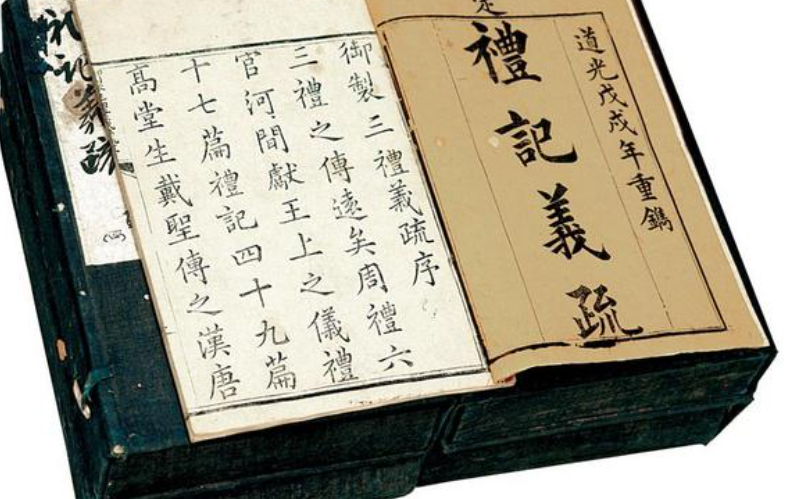 道光戊戌年重鐫
禮記義疏
定
御製三禮義疏序
三禮之傳遠矣周禮六
官河間獻王上之儀禮
十七篇禮記四十九篇
高堂生戴聖傳之漢唐
礼记義疏